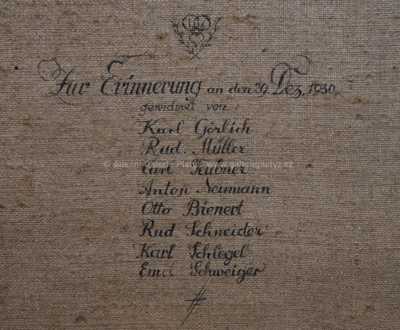 Zur Erinnerung an den 29. Dez. 1930.
gewidmet von:
Karl Görlich
Rud. Müller
Carl
Anton Neumann
Otto Bienert
Rud. Schneider
Karl Schlegel
Schweiger